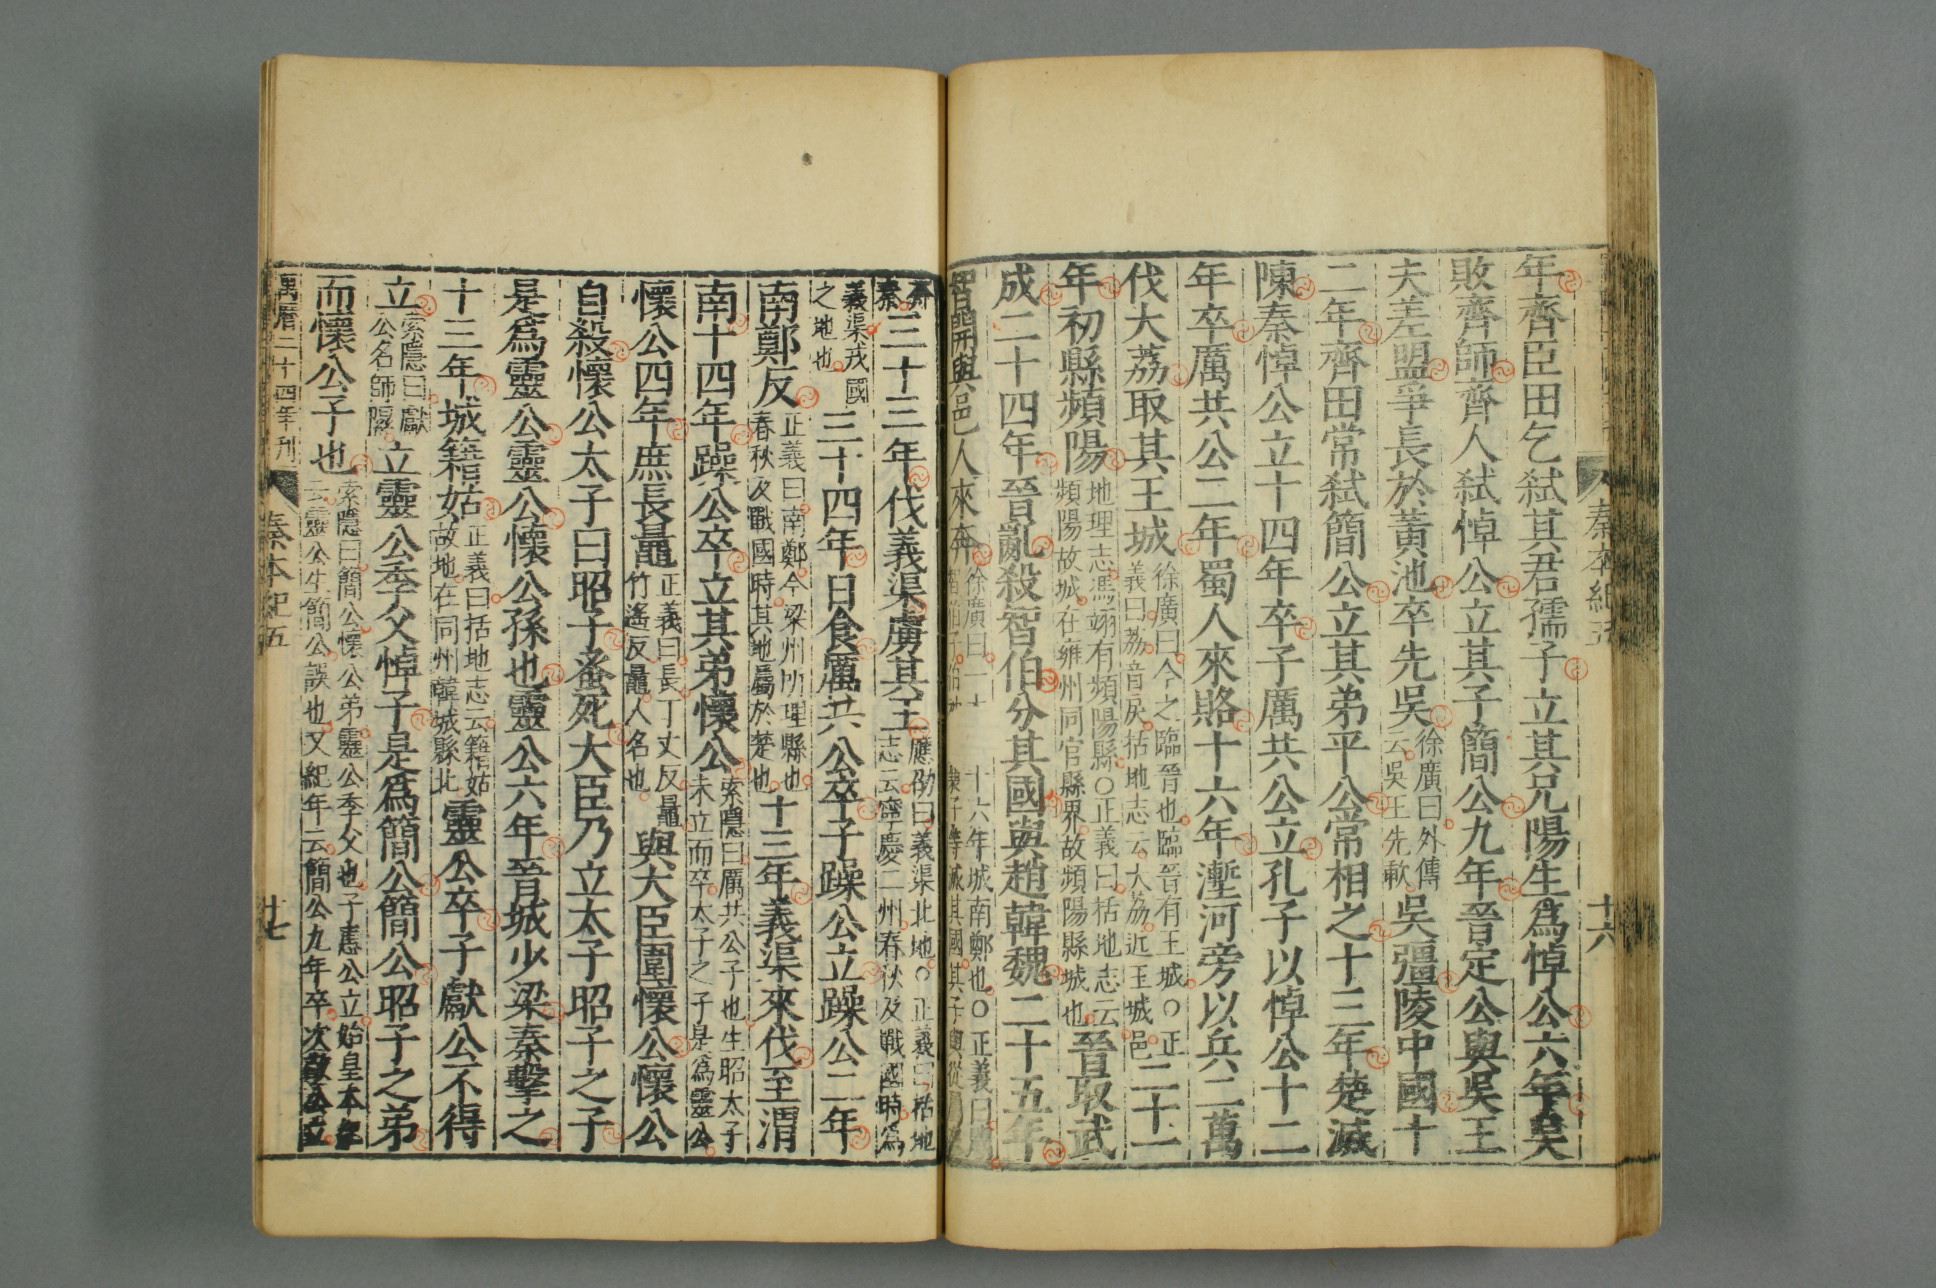 秦本紀五
十六
年齊臣田乞弑其君孺子立其兄陽生爲悼公六年吳
敗齊師齊人弑悼公立其子簡公九年晉定公與吳王
夫差盟爭長於黃池卒先吳徐廣曰外傳云吳王先歃吳彊陵中國十
二年齊田常弑簡公立其弟平公常相之十三年楚滅
陳秦悼公立十四年卒子厲共公立孔子以悼公十二
年卒厲共公二年蜀人來賂十六年塹河旁以兵二萬
伐大荔取其王城徐廣曰今之臨晉也臨晉有王城○正義曰荔音戾括地志云大荔近王城邑二十一
年初縣頻陽地理志馮翊有頻陽縣○正義曰括地志云頻陽故城在雍州同官縣界故頻陽縣城也晉取武
成二十四年晉亂殺智伯分其國與趙韓魏二十五年
智開與邑人來奔徐廣曰一十六年城南鄭也○正義曰
三十三年伐義渠虜其王應劭曰義渠北地○正義曰括地志云寧慶二州春秋及戰國時爲
義渠戎國之地也三十四年日食厲共公卒子躁公立躁公二年
南鄭反正義曰南鄭今梁州所理縣也春秋及戰國時其地屬於楚也十三年義渠來伐至渭
南十四年躁公卒立其弟懷公索隱曰厲共公子也生昭太子未立而卒太子之子是爲靈公
懷公四年庶長鼂正義曰長丁丈反鼂竹遙反鼂人名也與大臣圍懷公懷公
自殺懷公太子曰昭子蚤死大臣乃立太子昭子之子
是爲靈公靈公懷公孫也靈公六年晉城少梁秦擊之
十三年城籍姑正義曰括地志云籍姑故地在同州韓城縣北靈公卒子獻公不得
立索隱曰獻公名師隰立靈公季父悼子是爲簡公簡公昭子之弟
而懷公子也索隱曰簡公懷公弟靈公季父也始皇本紀云靈公生簡公誤也又紀年云簡公九年卒次敬公立
萬曆二十四年刊
秦本紀五
十七